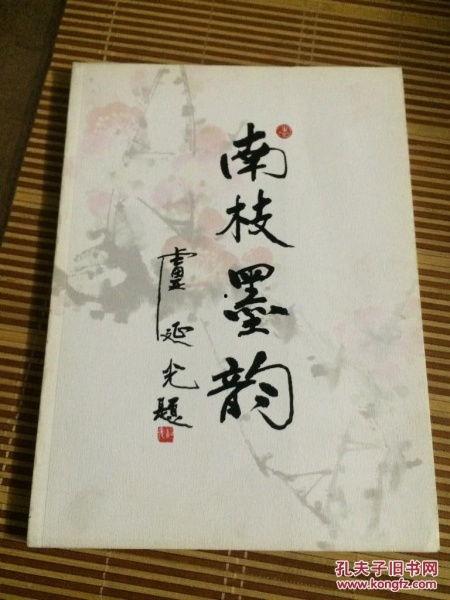 南枝墨韵
盧延光题
孔夫子旧书网
www.kongfz.com